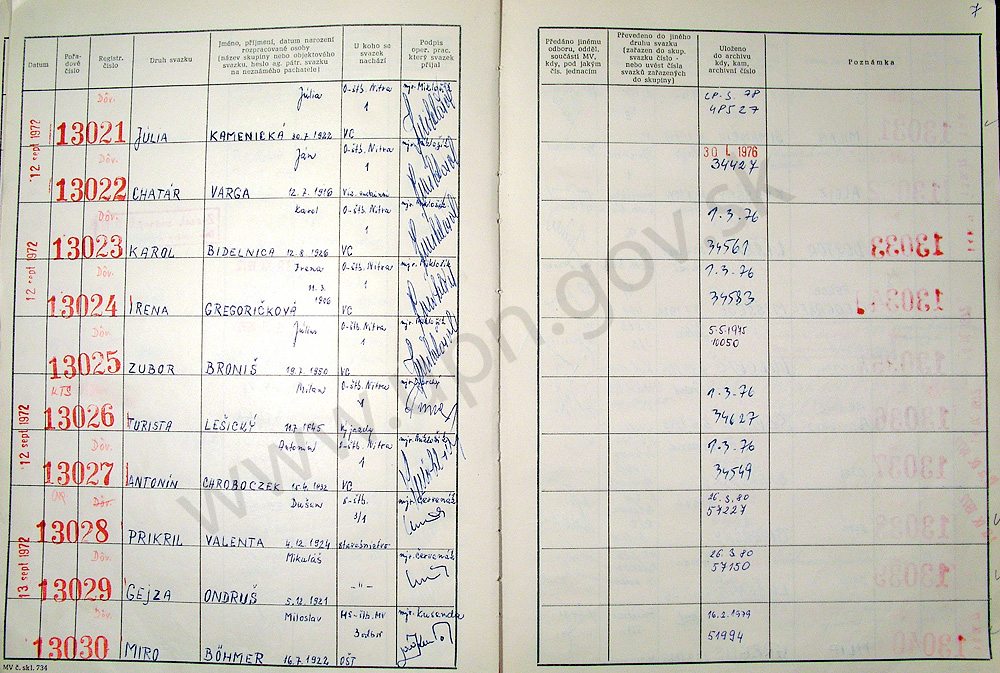 7
Datum
Pořadové číslo
Registr. číslo
Druh svazku
Jméno, příjmení, datum narození rozpracované osoby (název skupiny nebo objektového svazku, heslo ag. pátr. svazku na neznámého pachatele)
U koho se svazek nachází
Podpis oper. prac. který svazek přijal
Předáno jinému odboru, odděl. součásti MV, kdy, pod jakým čís. jednacím
Převedeno do jiného druhu svazku (zařazen do skup. svazku číslo - nebo uvést čísla svazků zařazených do skupiny)
Uloženo do archivu kdy, kam, archivní číslo
Poznámka
12. sept 1972
Dôv. Júlia O-štb. Nitra mjr. Miklošik
13021 JÚLIA KAMENICKÁ 20.7.1922 1 VC
78 48527
Dôv. Ján O-štb. Nitra
13022 CHATÁR VARGA 12.7.1916 1
30 I. 1976 34427
12 sept 1972
Dôv. Karol O-štb. Nitra
13023 KAROL BIDELNICA 12.8.1926 1 VC
1.3.76 34561
Dôv. Irena O-štb. Nitra mjr. Miklošik
13024 IRENA GREGORIČKOVÁ 1906 1 VC
1.3.76 34583
Dôv. Július O-štb. Nitra
13025 ZUBOR BRONIŠ 19.7.1950 1 VC
5.5.1975 10050
KTS Milan O-štb. Nitra
13026 TURISTA LEŠICKÝ 11.7.1945 1 Výjazdy
1.3.76 34627
12 sept 1972
Dôv. Antonín O-štb. Nitra mjr. Miklošik
13027 ANTONÍN CHROBOCZEK 15.4.1932 1 VC
1.3.76 34549
Dôv. Dušan S-štb. mjr. Červenák
13028 PRIKRIL VALENTA 4.12.1924 3/1 stavebníctvo
26.3.80 57227
13 sept 1972
Dôv. Mikuláš mjr. Červenák
13029 GEJZA ONDRUŠ 5.12.1921 -"-
26.3.80 57150
Dôv. Miloslav HS-štb. MV mjr. Kusenda
13030 MIRO BÖHMER 16.7.1922 3 odbor OŠT
16.2.1979 51994
MV č. skl. 734
www.upn.gov.sk